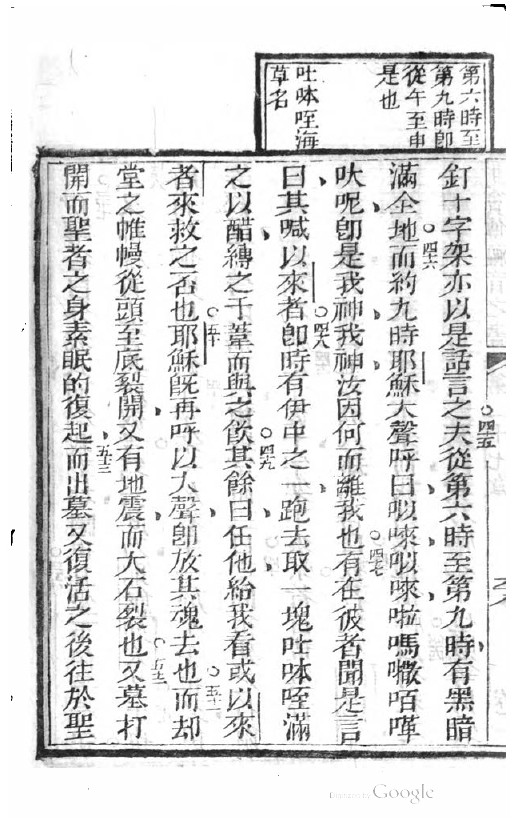 第六時至
第九時即
從午至申
是也
吐呠咥海
草名
釘十字架亦以是話言之夫從第六時至第九時有黑暗
滿全地而約九時耶穌大聲呼曰㕥唻㕥唻啦嗎𠾼咟嘆
吠呢卽是我神我神汝因何而離我也有在彼者聞是言
曰其喊以來者卽時有伊中之一跑去取一塊吐呠咥滿
之以醋縛之于葦而與之飲其餘曰任他給我看或以來
者來救之否也耶穌旣再呼以大聲卽放其魂去也而却
堂之帷幔從頭至底裂開又有地震而大石裂也又墓打
開而聖者之身素眠的復起而出墓又復活之後往於聖
四五
四六
四七
四八
四九
五十
五一
五二
五三
Digitized by Google